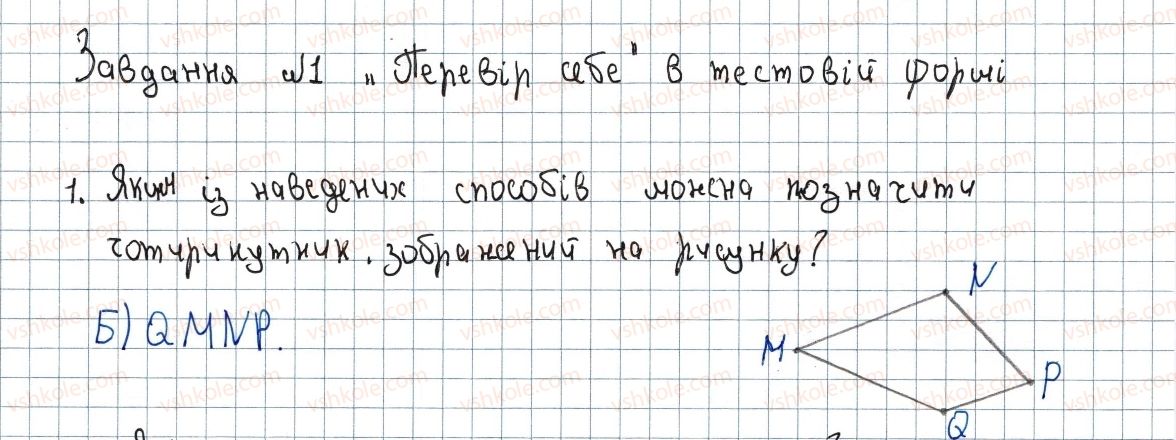 Завдання №1 „Перевір себе" в тестовій формі
1. Яким із наведених способів можна позначити
чотирикутник, зображений на рисунку?
Б) QMNP.
N
M
P
Q